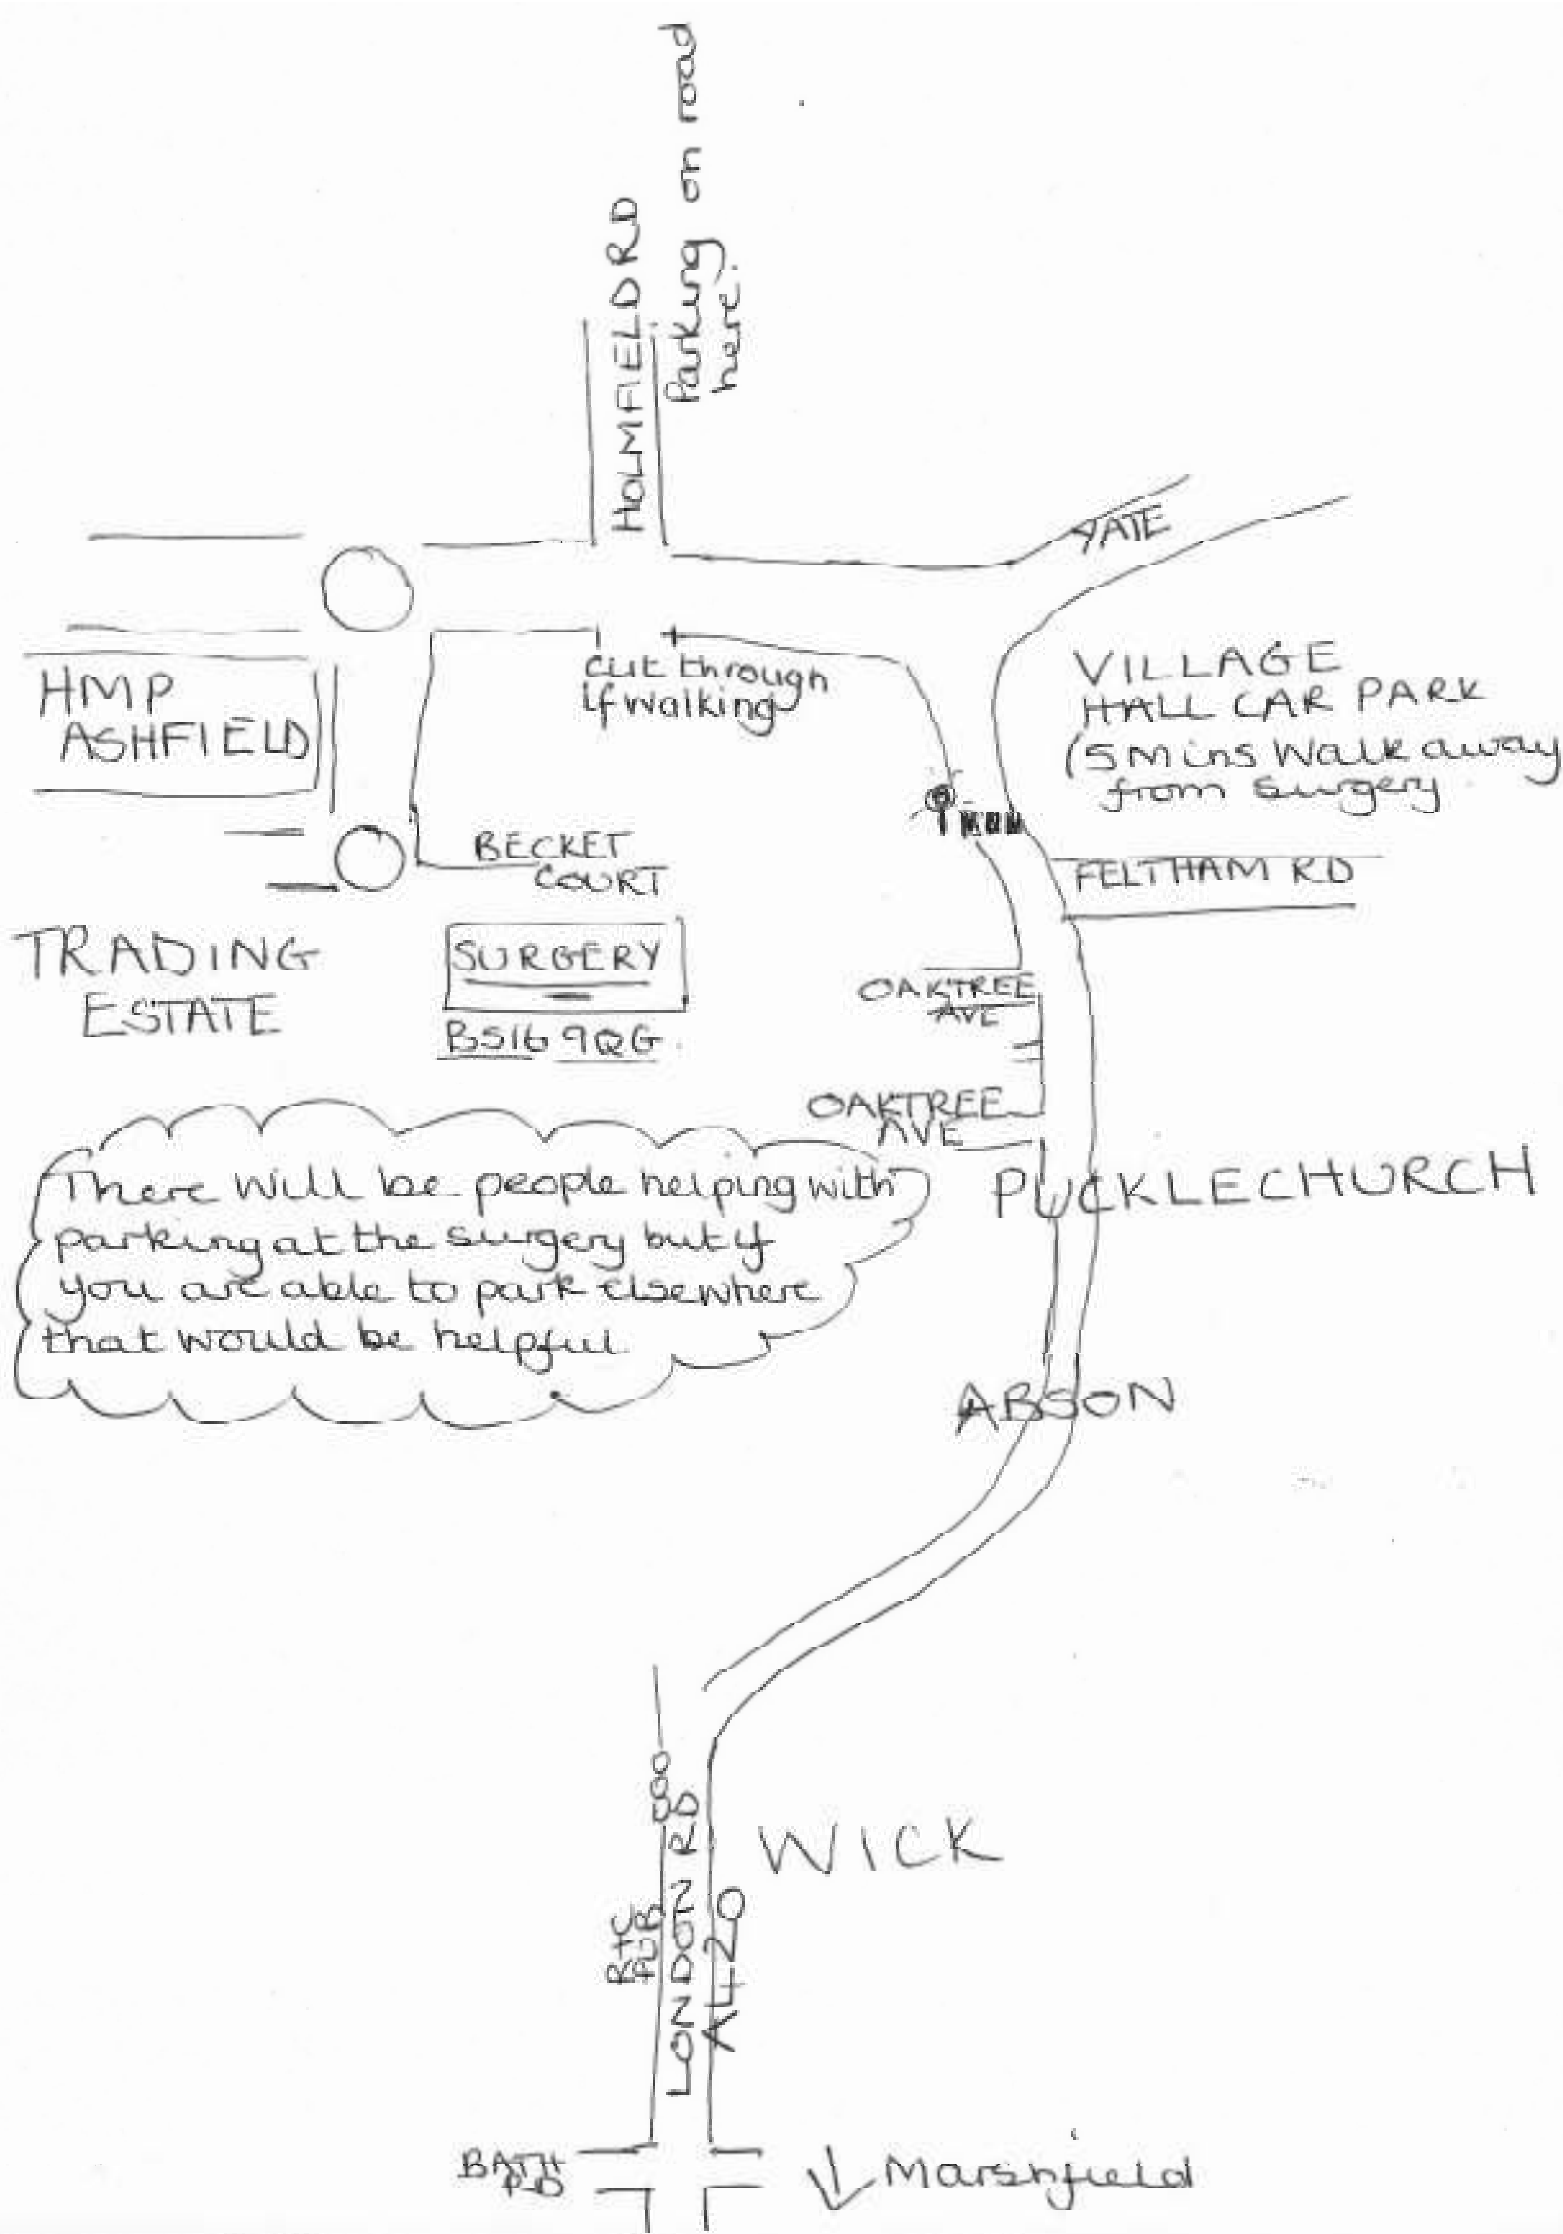 HOLMFIELD RD
Parking on road
here.
YATE
cut through
if walking
HMP
ASHFIELD
VILLAGE
HALL CAR PARK
(5 Mins Walk away
from surgery
BECKET
COURT
FELTHAM RD
TRADING
ESTATE
SURGERY
BS16 9QG
OAKTREE
AVE
OAKTREE
AVE
PUCKLECHURCH
There will be people helping with
parking at the surgery but if
you are able to park elsewhere
that would be helpful
ABSON
WICK
LONDON RD
A420
PUB
BATH
RD
Marshfield